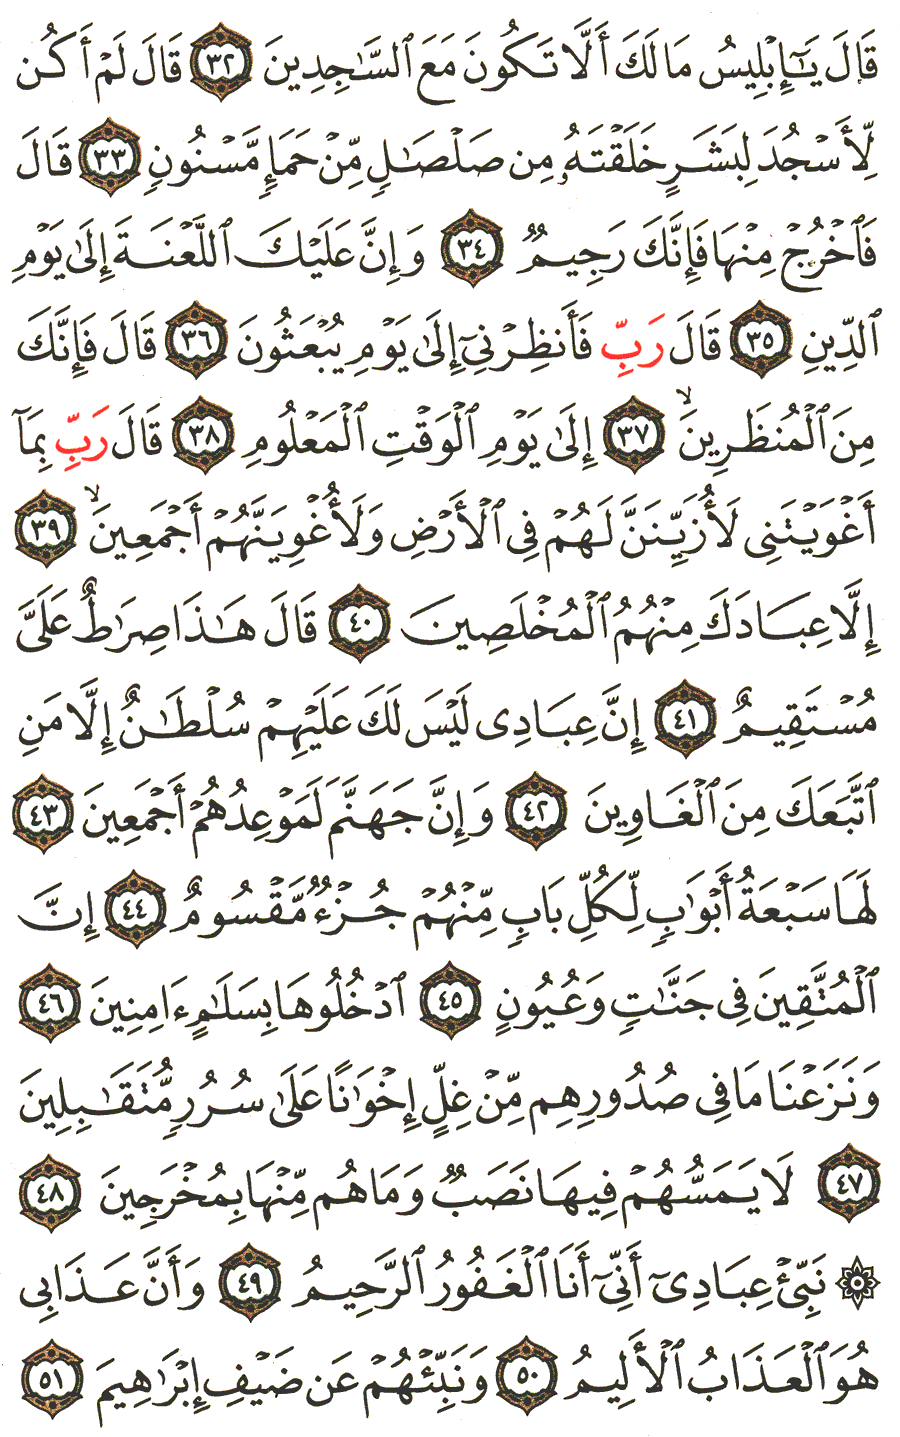 قَالَ يَٰٓإِبْلِيسُ مَا لَكَ أَلَّا تَكُونَ مَعَ ٱلسَّٰجِدِينَ ٣٢ قَالَ لَمْ أَكُن
لِّأَسْجُدَ لِبَشَرٍ خَلَقْتَهُۥ مِن صَلْصَٰلٍ مِّنْ حَمَإٍ مَّسْنُونٍ ٣٣ قَالَ
فَٱخْرُجْ مِنْهَا فَإِنَّكَ رَجِيمٌ ٣٤ وَإِنَّ عَلَيْكَ ٱللَّعْنَةَ إِلَىٰ يَوْمِ
ٱلدِّينِ ٣٥ قَالَ رَبِّ فَأَنظِرْنِىٓ إِلَىٰ يَوْمِ يُبْعَثُونَ ٣٦ قَالَ فَإِنَّكَ
مِنَ ٱلْمُنظَرِينَ ۙ ٣٧ إِلَىٰ يَوْمِ ٱلْوَقْتِ ٱلْمَعْلُومِ ٣٨ قَالَ رَبِّ بِمَآ
أَغْوَيْتَنِى لَأُزَيِّنَنَّ لَهُمْ فِى ٱلْأَرْضِ وَلَأُغْوِيَنَّهُمْ أَجْمَعِينَ ۙ ٣٩
إِلَّا عِبَادَكَ مِنْهُمُ ٱلْمُخْلَصِينَ ٤٠ قَالَ هَٰذَا صِرَٰطٌ عَلَىَّ
مُسْتَقِيمٌ ٤١ إِنَّ عِبَادِى لَيْسَ لَكَ عَلَيْهِمْ سُلْطَٰنٌ إِلَّا مَنِ
ٱتَّبَعَكَ مِنَ ٱلْغَاوِينَ ٤٢ وَإِنَّ جَهَنَّمَ لَمَوْعِدُهُمْ أَجْمَعِينَ ٤٣
لَهَا سَبْعَةُ أَبْوَٰبٍ لِّكُلِّ بَابٍ مِّنْهُمْ جُزْءٌ مَّقْسُومٌ ٤٤ إِنَّ
ٱلْمُتَّقِينَ فِى جَنَّٰتٍ وَعُيُونٍ ٤٥ ٱدْخُلُوهَا بِسَلَٰمٍ ءَامِنِينَ ٤٦
وَنَزَعْنَا مَا فِى صُدُورِهِم مِّنْ غِلٍّ إِخْوَٰنًا عَلَىٰ سُرُرٍ مُّتَقَٰبِلِينَ
٤٧ لَا يَمَسُّهُمْ فِيهَا نَصَبٌ وَمَا هُم مِّنْهَا بِمُخْرَجِينَ ٤٨
۞ نَبِّئْ عِبَادِىٓ أَنِّىٓ أَنَا ٱلْغَفُورُ ٱلرَّحِيمُ ٤٩ وَأَنَّ عَذَابِى
هُوَ ٱلْعَذَابُ ٱلْأَلِيمُ ٥٠ وَنَبِّئْهُمْ عَن ضَيْفِ إِبْرَٰهِيمَ ٥١